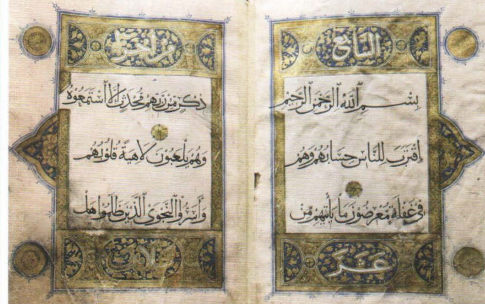 السابع
بسم الله الرحمن الرحيم
اقترب للناس حسابهم وهم
في غفلة معرضون ما ياتيهم من
عشر
من
ذكر من ربهم محدث الا استمعوه
وهم يلعبون لاهية قلوبهم
واسروا النجوى الذين ظلموا هل